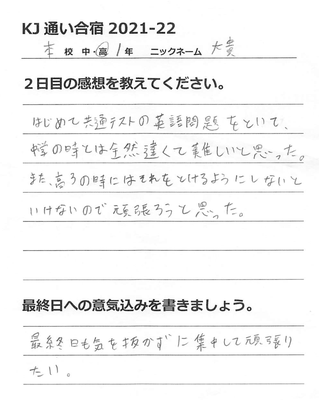 KJ 通い合宿 2021-22
本 校 中・高 1年 ニックネーム 大貴
2日目の感想を教えてください。
はじめて共通テストの英語問題をといて、
中学の時とは全然違くて難しいと思った。
また、高3の時にはそれをとけるようにしないと
いけないので頑張ろうと思った。
最終日への意気込みを書きましょう。
最終日も気を抜かずに集中して頑張り
たい。